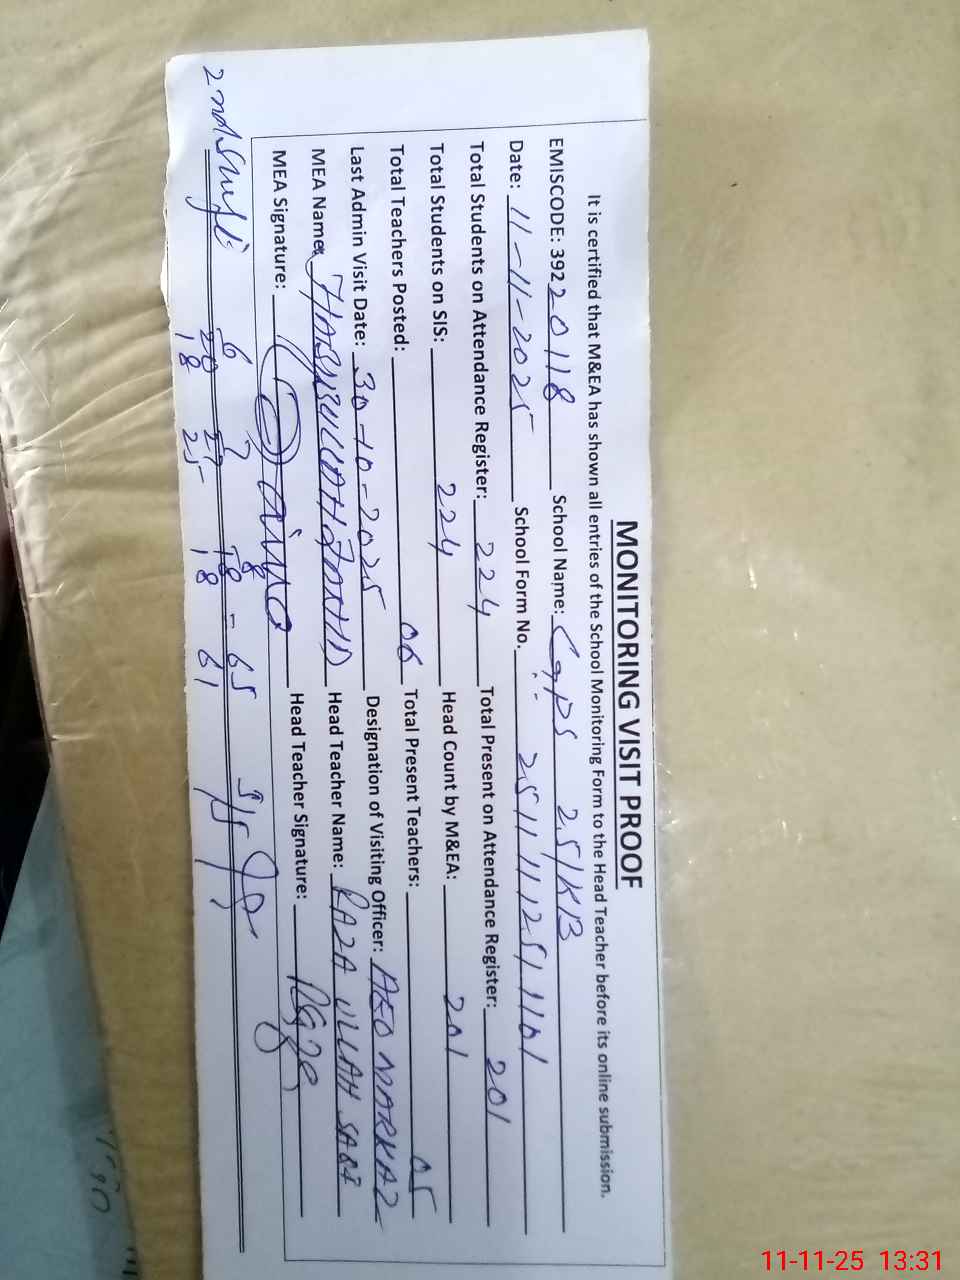 MONITORING VISIT PROOF
It is certified that M&EA has shown all entries of the School Monitoring Form to the Head Teacher before its online submission.
EMISCODE: 39220118 School Name: GGPS 25/KB
Date: 11-11-2025 School Form No. 251111251101
Total Students on Attendance Register: 224 Total Present on Attendance Register: 201
Total Students on SIS: 224 Head Count by M&EA: 201
Total Teachers Posted: 06 Total Present Teachers: 05
Last Admin Visit Date: 30-10-2025 Designation of Visiting Officer: AEO MARKAZ
MEA Name: Head Teacher Name: RAZA ULLAH
MEA Signature: Head Teacher Signature:
2nd Shift 6 7 8 - 65 3/5
20 18
18 25 18 61
11-11-25 13:31